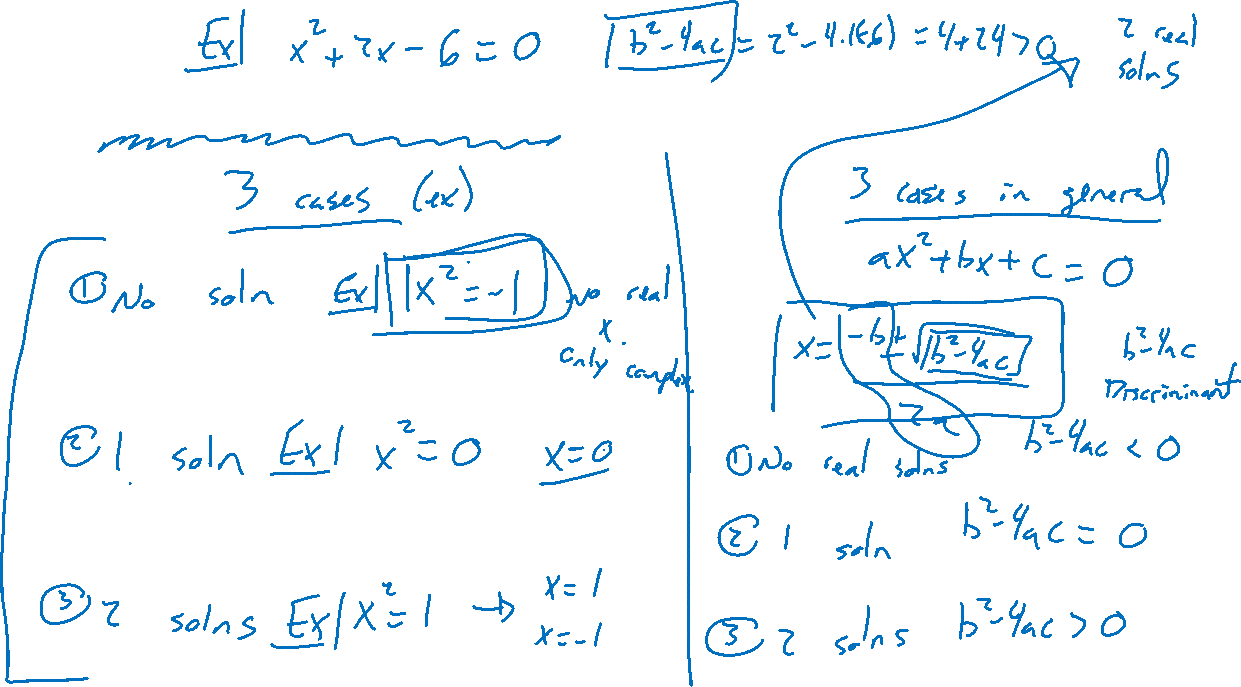 Ex| x²+2x-6=0 b²-4ac = 2²-4.1(-6) = 4+24>0 2 real solns
3 cases (ex)
① No soln Ex| x²=-1 no real x. only complex
② 1 soln Ex| x²=0 x=0
③ 2 solns Ex| x²=1 → x=1 x=-1
3 cases in general
ax²+bx+c=0
x = (-b±√(b²-4ac))/2a b²-4ac Discriminant
① No real solns b²-4ac<0
② 1 soln b²-4ac=0
③ 2 solns b²-4ac>0